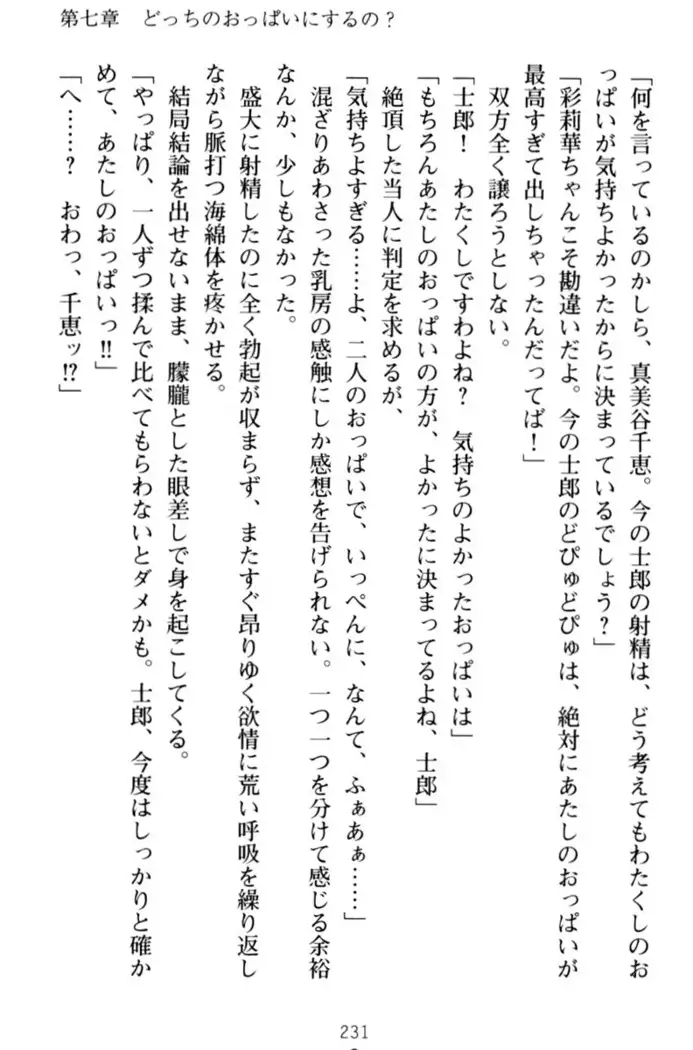 第七章　どっちのおっぱいにするの？
「何を言っているのかしら、真美谷千恵。今の士郎の射精は、どう考えてもわたくしのお
っぱいが気持ちよかったからに決まっているでしょう？」
「彩莉華ちゃんこそ勘違いだよ。今の士郎のどぴゅどぴゅは、絶対にあたしのおっぱいが
最高すぎて出しちゃったんだってば！」
　双方全く譲ろうとしない。
「士郎！　わたくしですわよね？　気持ちのよかったおっぱいは」
「もちろんあたしのおっぱいの方が、よかったに決まってるよね、士郎」
　絶頂した当人に判定を求めるが、
「気持ちよすぎる……よ、二人のおっぱいで、いっぺんに、なんて、ふぁあぁ……」
　混ざりあわさった乳房の感触にしか感想を告げられない。一つ一つを分けて感じる余裕
なんか、少しもなかった。
　盛大に射精したのに全く勃起が収まらず、またすぐ昂りゆく欲情に荒い呼吸を繰り返し
ながら脈打つ海綿体を疼かせる。
　結局結論を出せないまま、朦朧とした眼差しで身を起こしてくる。
「やっぱり、一人ずつ揉んで比べてもらわないとダメかも。士郎、今度はしっかりと確か
めて、あたしのおっぱいっ!!」
「へ……？　おわっ、千恵ッ!?」
231